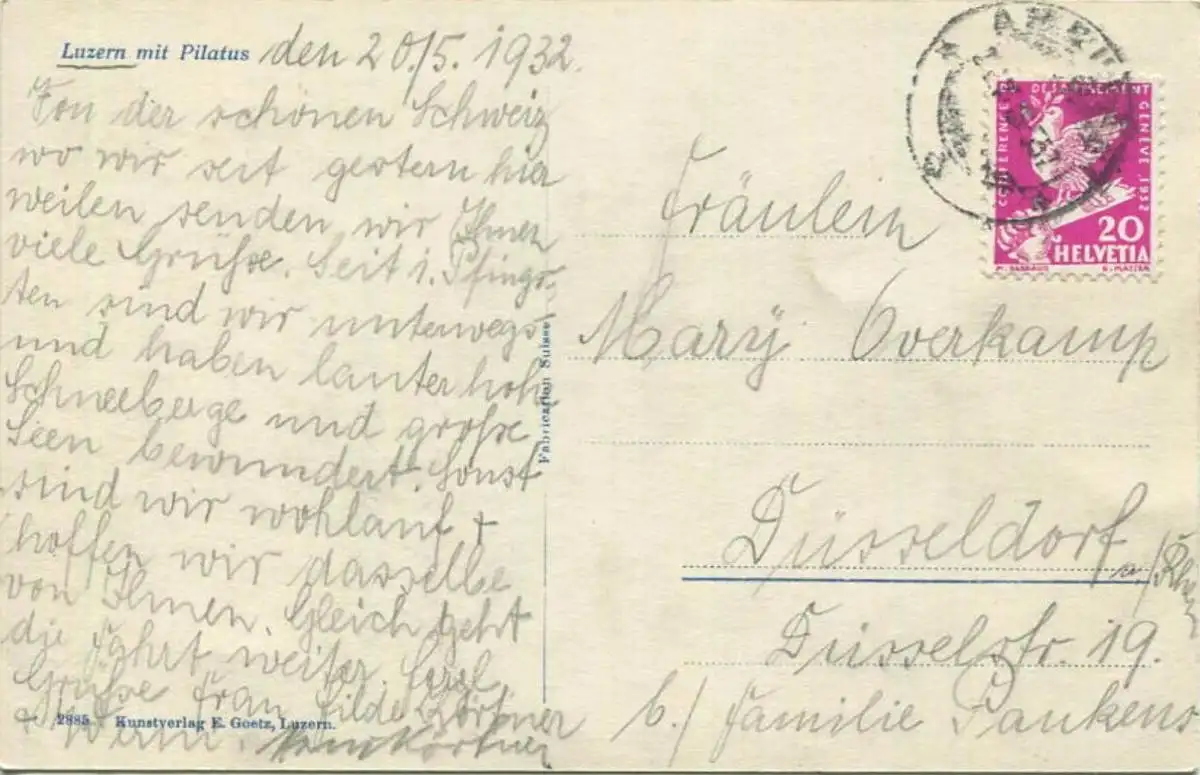 Luzern mit Pilatus den 20./5. 1932.
Von der schönen Schweiz
wo wir seit gestern hier
weilen senden wir Ihnen
viele Grüße. Seit 1. Pfings-
ten sind wir unterwegs
und haben lauter hohe
Schneeberge und große
Seen bewundert. Sonst
sind wir wohlauf +
hoffen wir dasselbe
von Ihnen. Gleich geht
die Fahrt weiter. Herzl.
Grüße Frau Hilde Körtner
+
2885 Kunstverlag E. Goetz, Luzern.
Fabrication Suisse
CONFERENCE DU DESARMEMENT GENEVE 1932
20
HELVETIA
Fräulein
Mary Overkamp
Düsseldorf a./Rhein
Düsselstr. 19.
b./ Familie Pankens